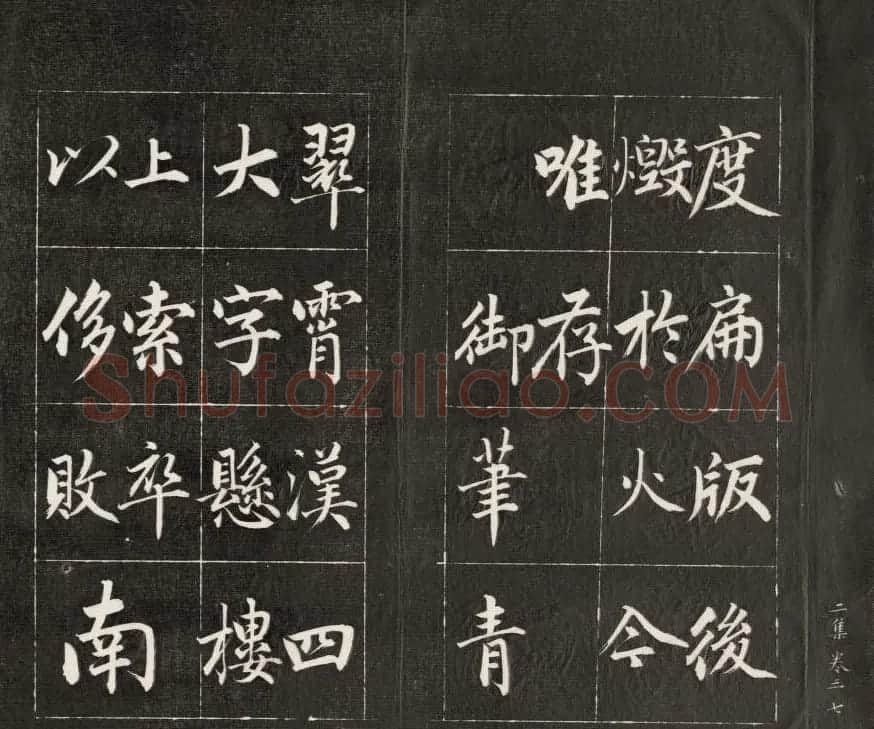 度扁版後
燬於火今
唯存
御筆青
翠霄漢四
大字懸樓
上索卒
以侈敗南
二集 卷二 七
Shufaziliao.COM